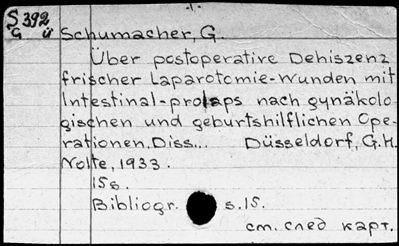 -1-
S 392
G ü
Schumacher, G.
Über postoperative Dehiszenz
frischer Laparotomie-Wunden mit
Intestinal-prolaps nach gynäkolo-
gischen und geburtshilflichen Ope-
rationen. Diss... Düsseldorf, G.H.
Nolte, 1933.
15s.
Bibliogr. s.15.
см. след карт.